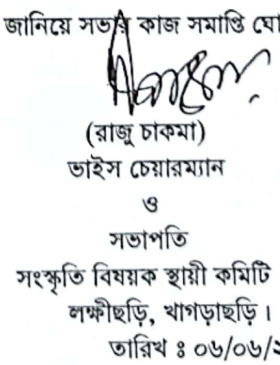 জানিয়ে সভার কাজ সমাপ্তি
(রাজু চাকমা)
ভাইস চেয়ারম্যান
ও
সভাপতি
সংস্কৃতি বিষয়ক স্থায়ী কমিটি
লক্ষীছড়ি, খাগড়াছড়ি।
তারিখ ঃ ০৬/০৬/